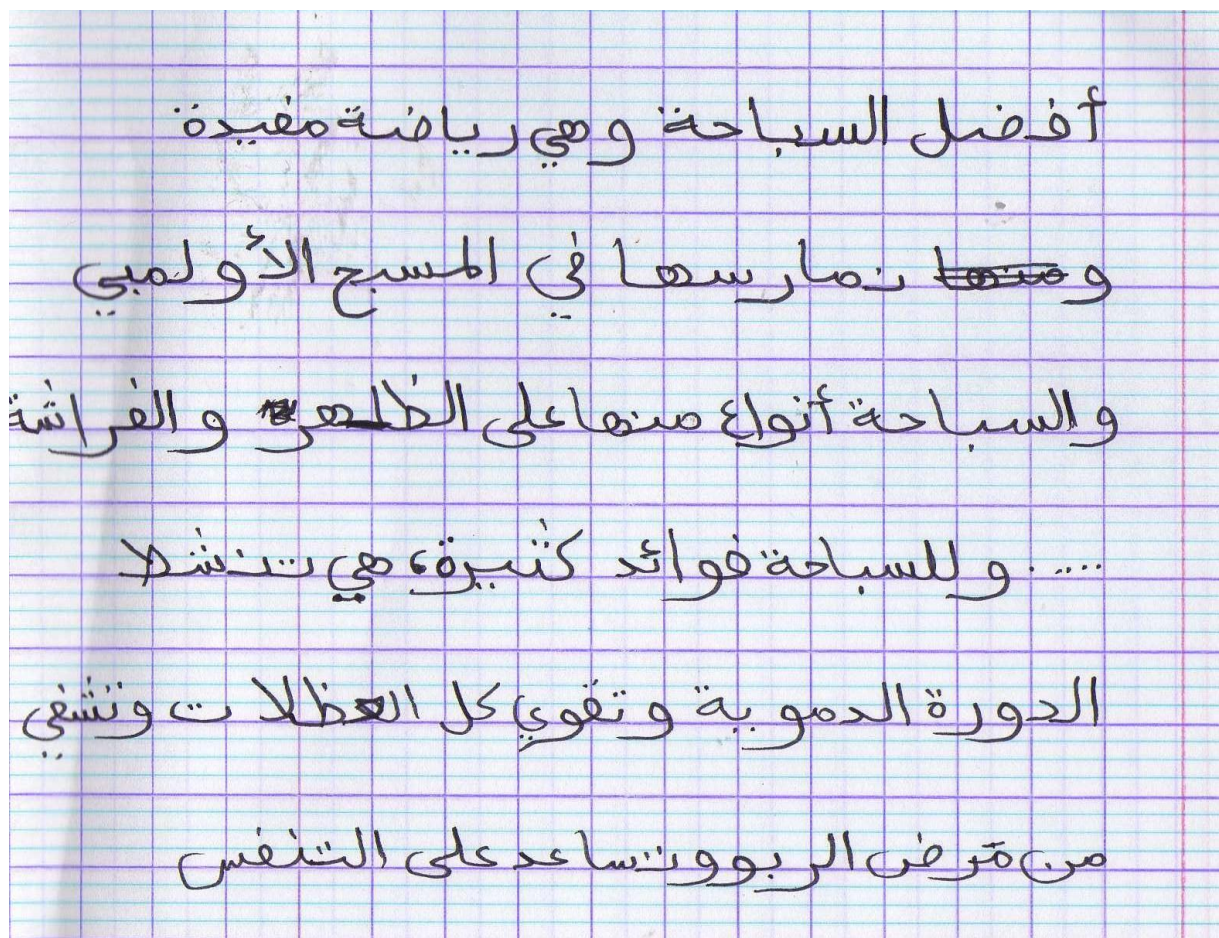 أفضل السباحة وهي رياضة مفيدة
و نمارسها في المسبح الأولمبي
والسباحة أنواع منها على الظهر والفراشة
..... وللسباحة فوائد كثيرة، هي تنشط
الدورة الدموية وتقوي كل العظلات وتشفي
من مرض الربو وتساعد على التنفس